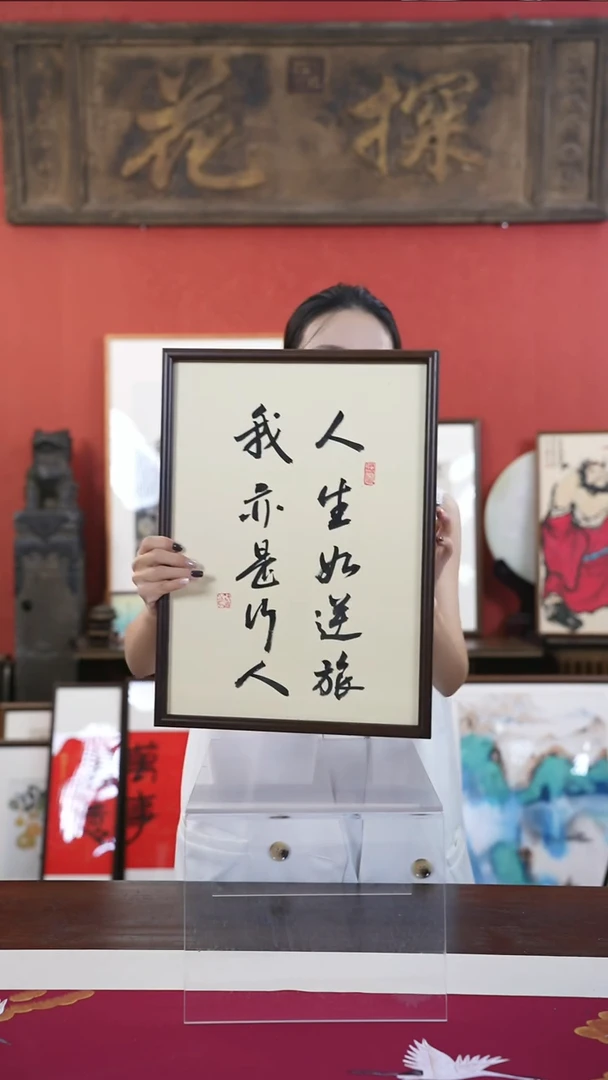 探花
人生如逆旅
我亦是行人
萬事